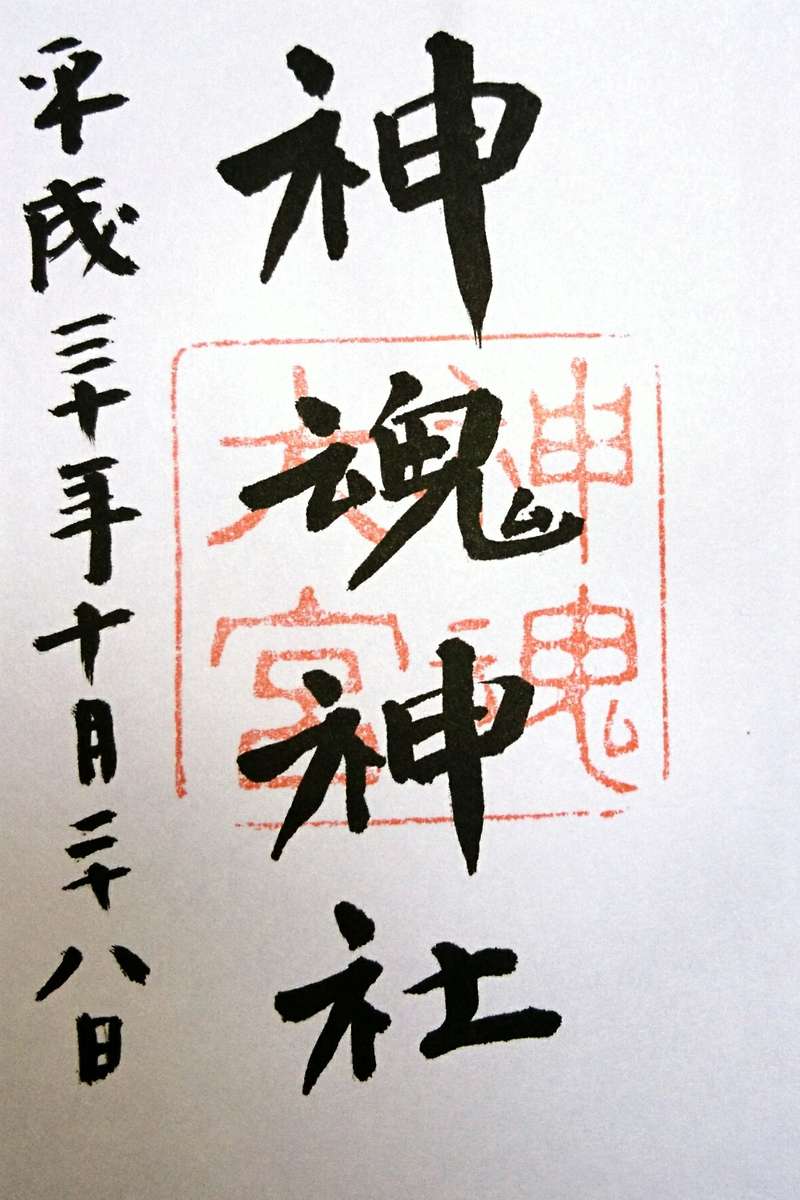 神魂神社
神魂
大宮
平成三十年十月二十八日